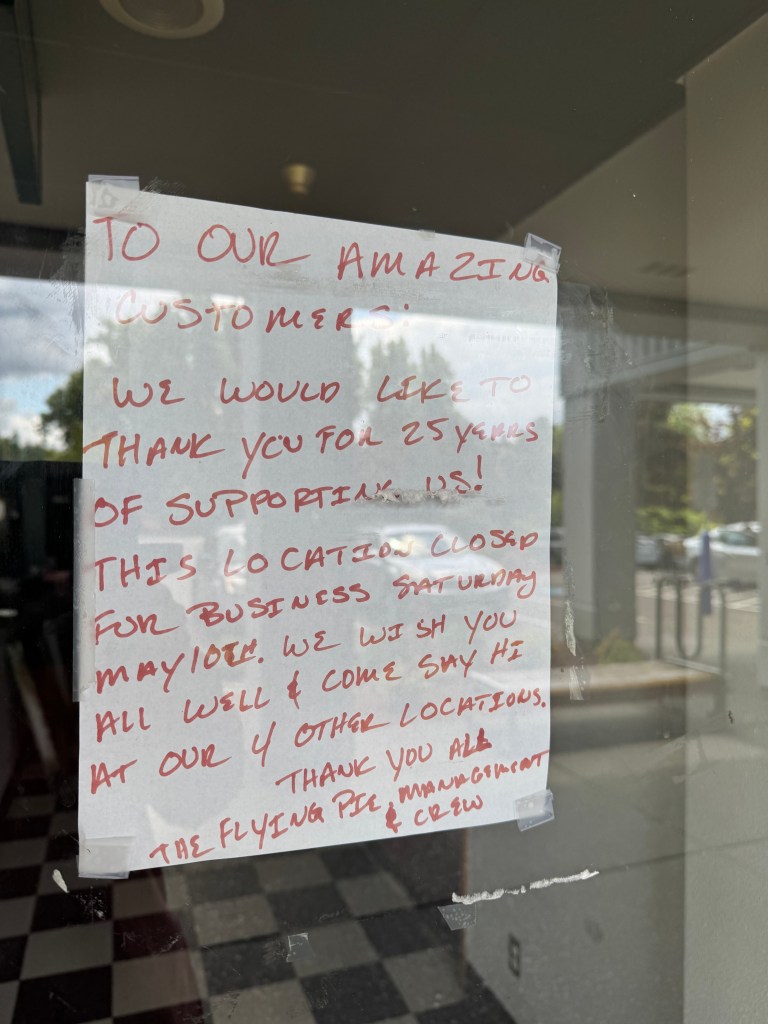 TO OUR AMAZING
CUSTOMERS:
WE WOULD LIKE TO
THANK YOU FOR 25 YEARS
OF SUPPORTING US!
THIS LOCATION CLOSED
FOR BUSINESS SATURDAY
MAY 10TH. WE WISH YOU
ALL WELL & COME SAY HI
AT OUR 4 OTHER LOCATIONS.
THANK YOU ALL
THE FLYING PIE MANAGEMENT
& CREW